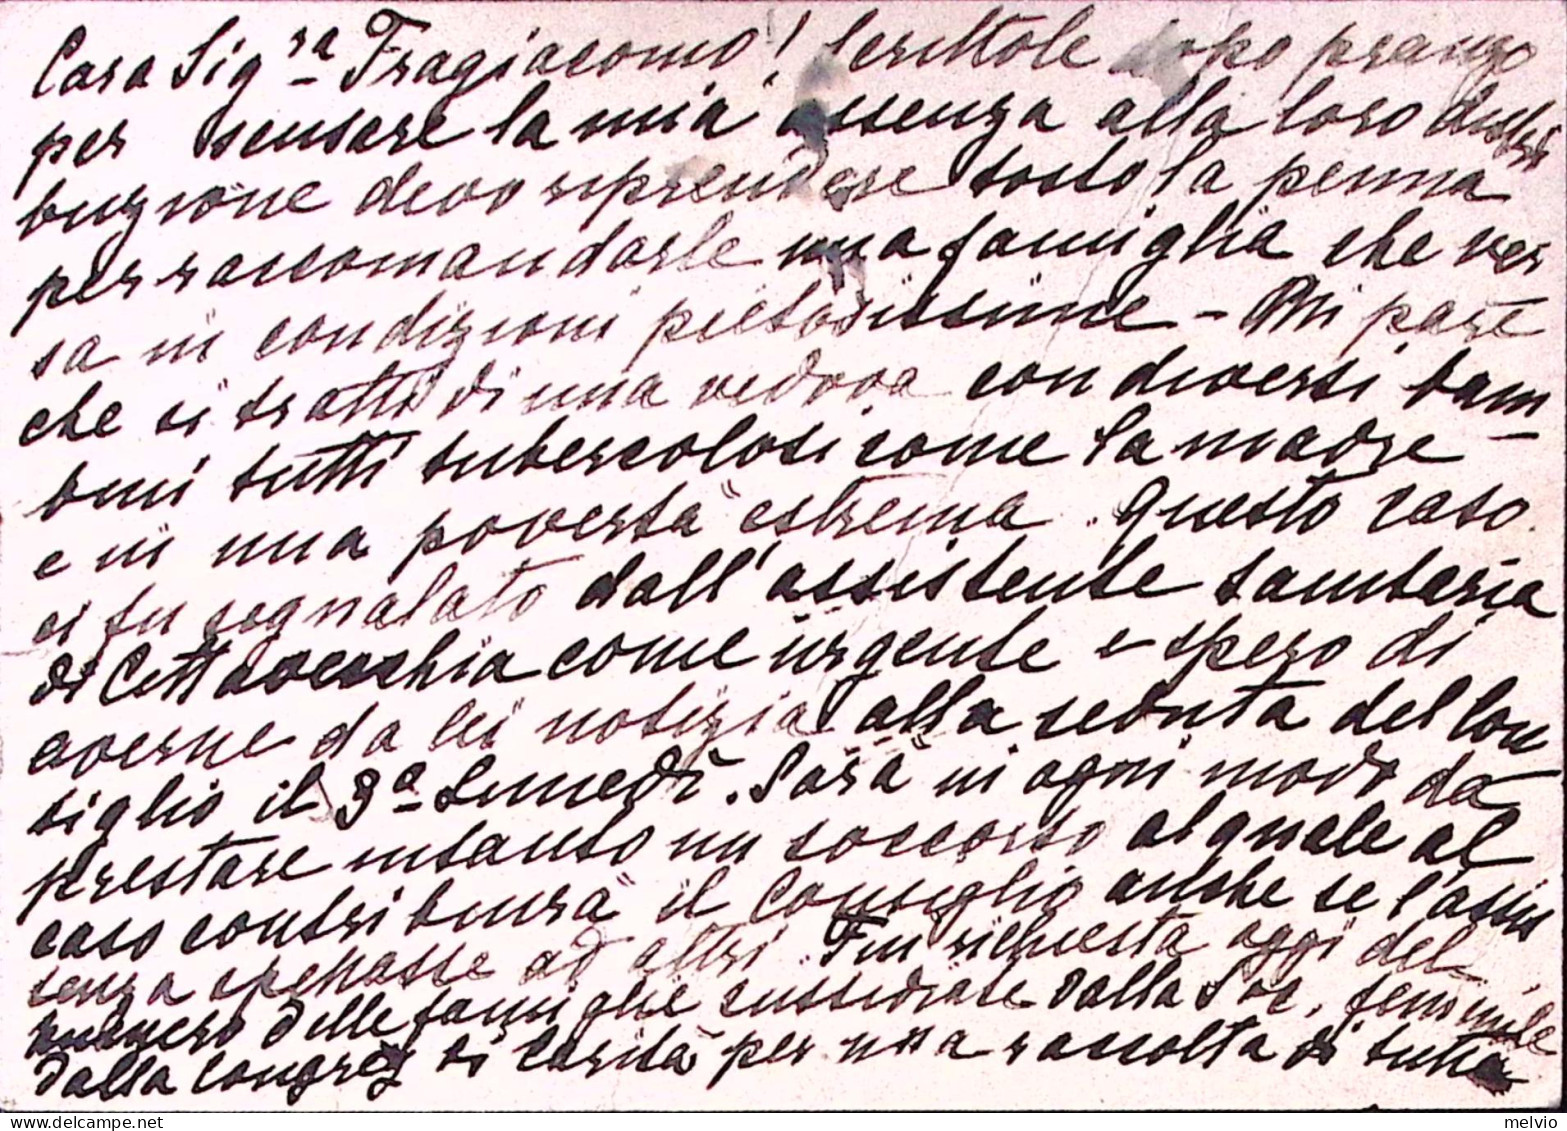 Cara Sig.ra Fragiacomo! Scrittole dopo pranzo
per scusare la mia assenza alla loro distri
buzione devo riprendere tosto la penna
per raccomandarle una famiglia che ver
sa in condizioni pietosissime - Mi pare
che si tratti di una vedova con diversi bam
bini tutti tubercolosi come la madre -
e in una povertà estrema. Questo caso
ci fu segnalato dall'assistente sanitaria
di Cittavecchia come urgente e spero di
averne da lei notizia alla seduta del Con
siglio il 3º Lunedì. Sarà in ogni modo da
prestare intanto un soccorso al quale al
caso contribuirà il Consiglio anche se l'assis
tenza spettasse ad altri. Fui richiesta oggi del
numero delle famiglie sussidiate dalla Soc. femminile
dalla Congreg di Carità per una raccolta di tutta
melvio